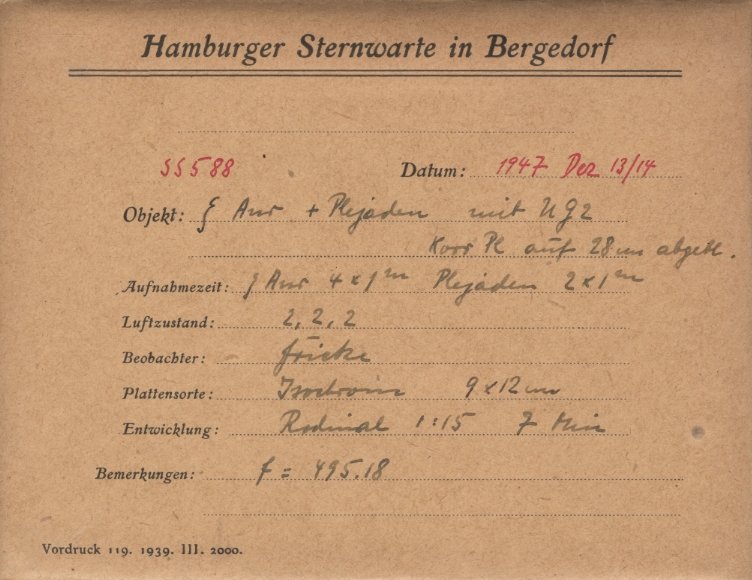 Hamburger Sternwarte in Bergedorf
SS588 Datum: 1947 Dez 13/14
Objekt: ζ Aur + Plejaden mit UG2
Korr Pl auf 28 cm abgebl.
Aufnahmezeit: ζ Aur 4 x 1m Plejaden 2 x 1m
Luftzustand: 2, 2, 2
Beobachter: Fricke
Plattensorte: Isochrom 9 x 12 cm
Entwicklung: Rodinal 1:15 7 Min
Bemerkungen: f = 495.18
Vordruck 119. 1939. III. 2000.